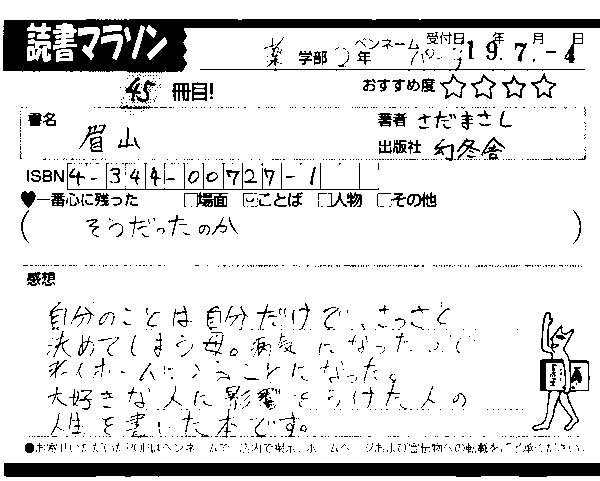 読書マラソン
薬 学部 2年 ペンネーム 受付日 19年 7月 -4日
45 冊目! おすすめ度 ☆☆☆☆
書名 眉山
著者 さだまさし
出版社 幻冬舎
ISBN 4-344-00727-1
♥一番心に残った □場面 ☑ことば □人物 □その他
( そうだったのか )
感想
自分のことは自分だけで、さっさと
決めてしまう母。病気になった
ことになった。
大好きな人に影響をうけた人の
人生を書いた本です。